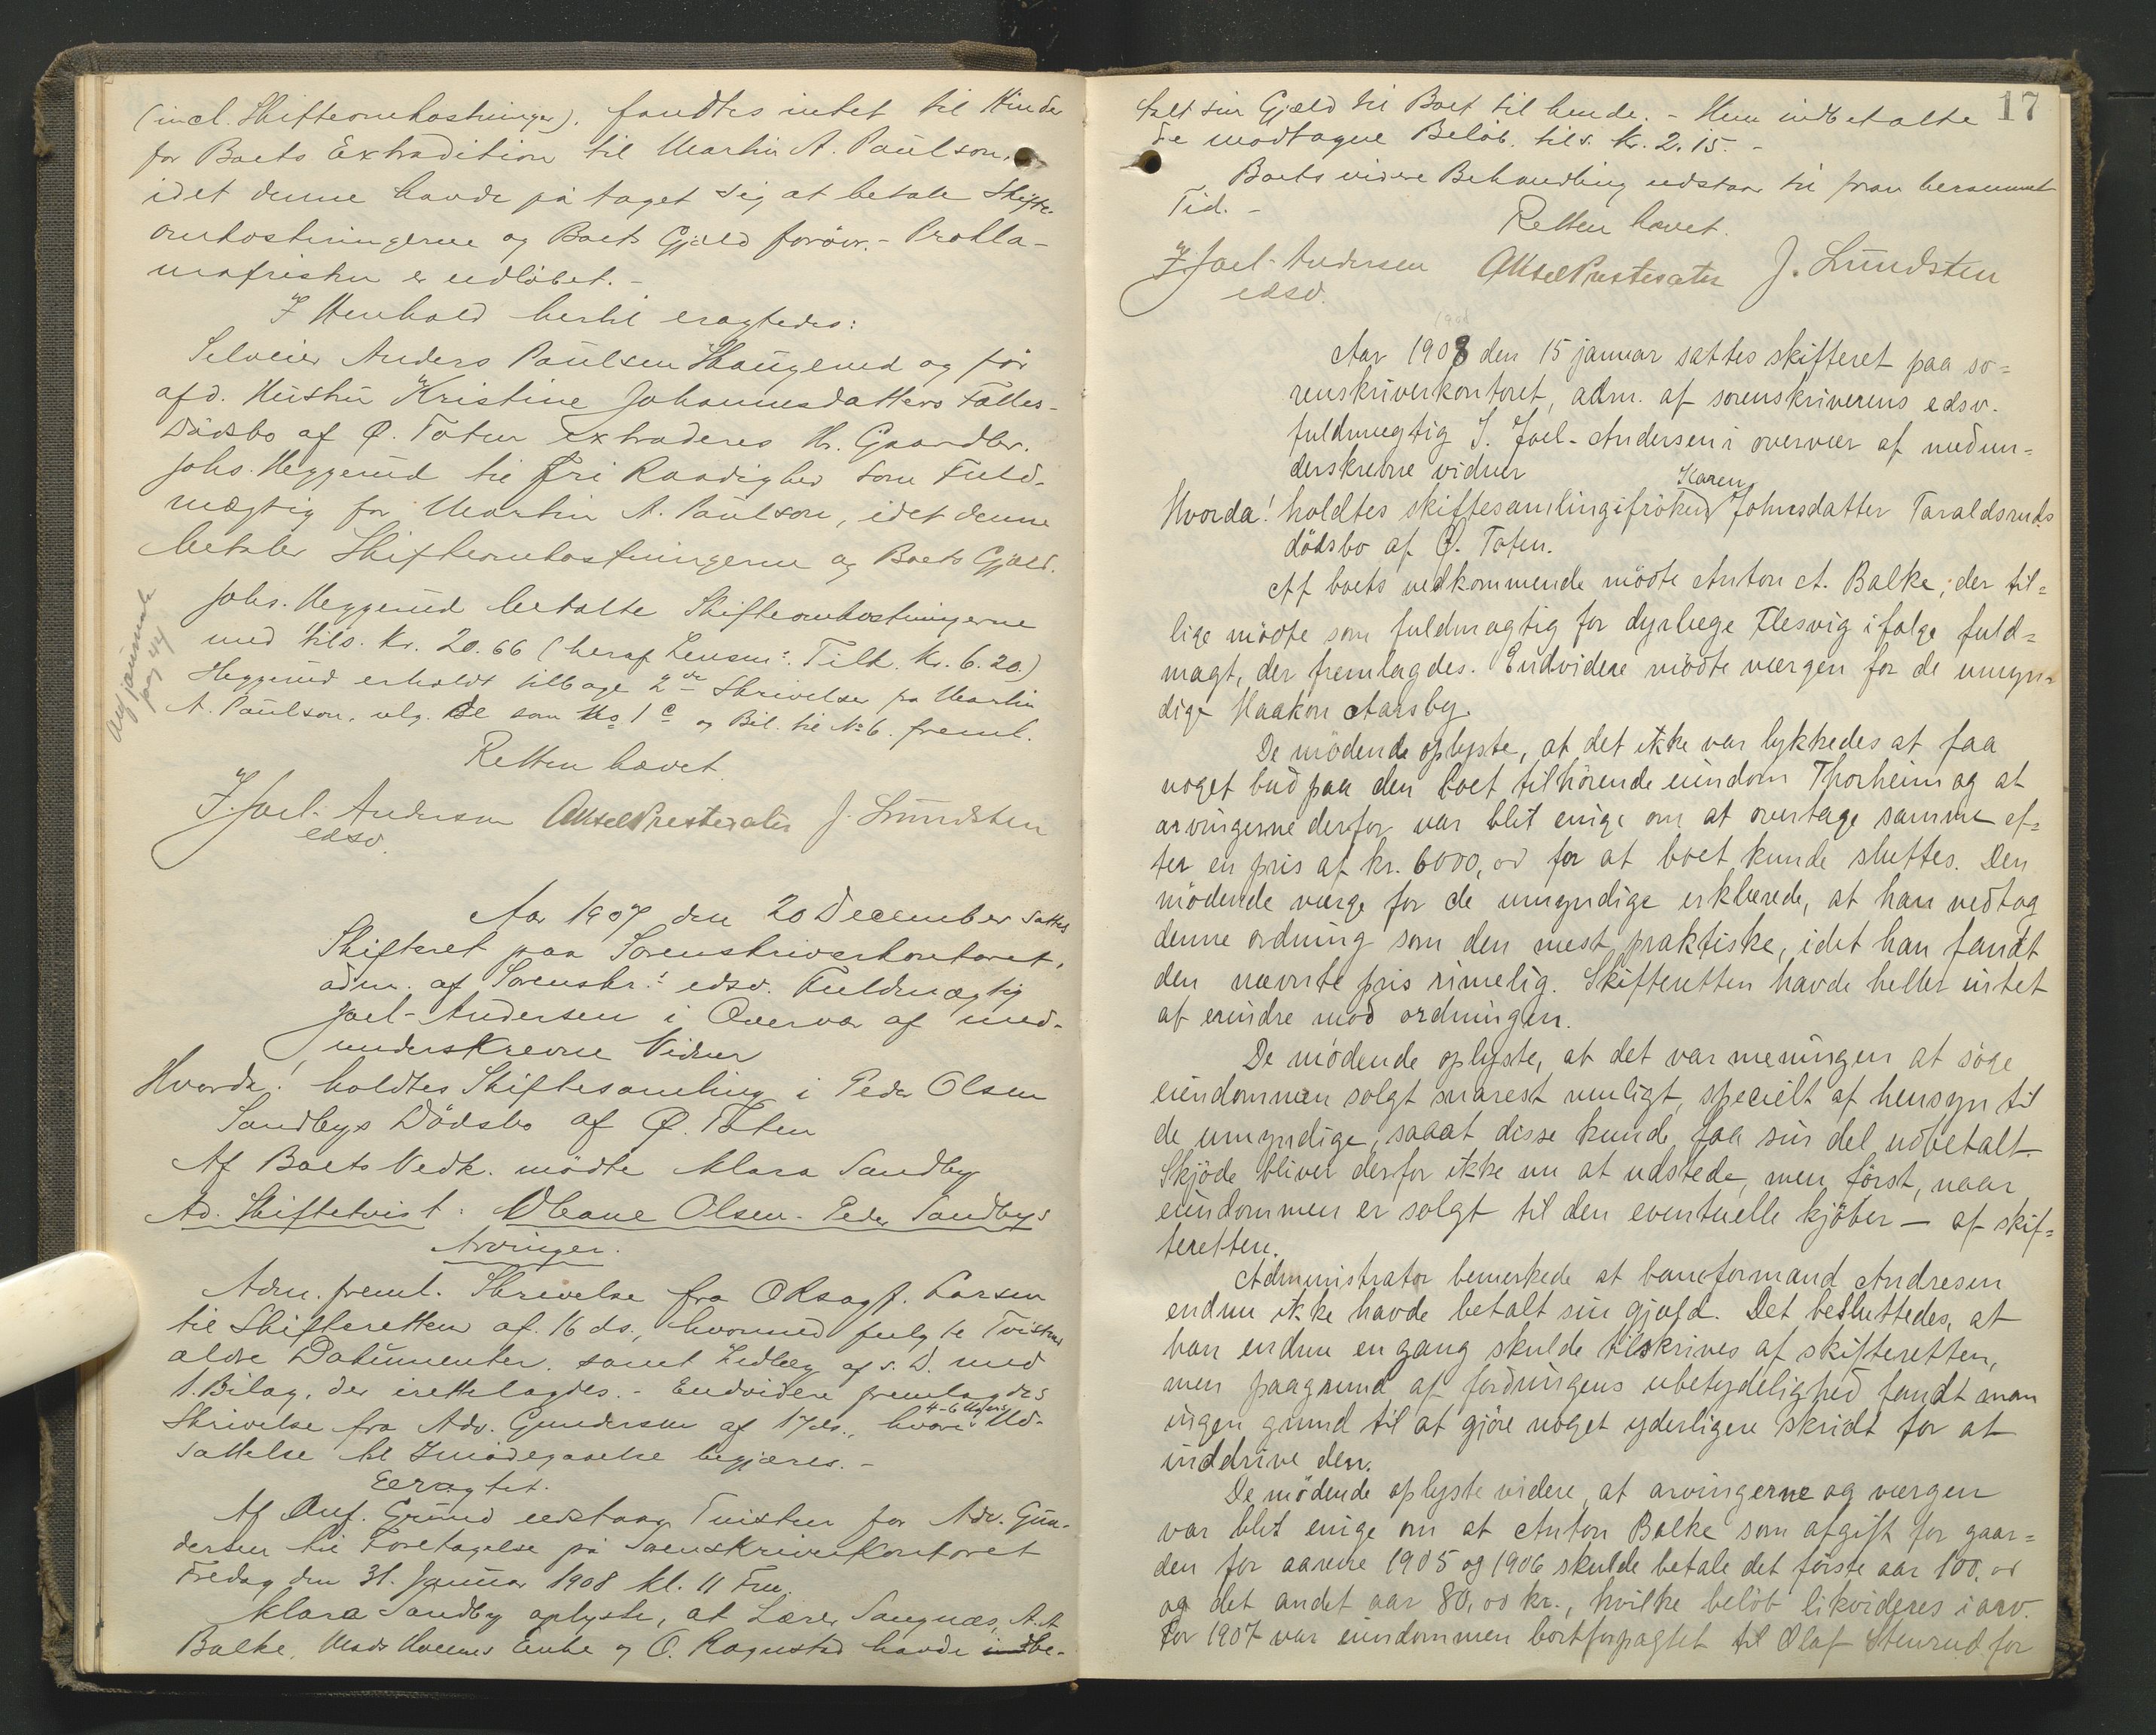 (incl. Skifteomkostninger). fandtes intet til Hinder
for Boets Extradition til Martin A. Paulson,
idet denne havde på taget sig at betale Skifte-
omkostningerne og Boets Gjæld forövr. - Prokla-
mafristen er udløbet. -
I Henhold hertil eragtedes:
Selveier Anders Paulsen Haugerud og før
afd. Hustru Kristine Johannesdatters Fælles-
Dødsbo af Ø. Toten extraderes Hr. Gaardbr.
Johs. Heggerud til fri Raadighed som Fuld-
mægtig for Martin A. Paulson, idet denne
betaler Skifteomkostningerne og Boets Gjæld.
Johs. Heggerud betalte Skifteomkostningerne
med tils. Kr. 20.66 (heraf Lensm.s Tilh. Kr. 6.20)
Heggerud erholdt tilbage 2de Skrivelser fra Martin
A. Paulson, vlg. som No 1 c og Bil. til No 6. freml.
Retten hævet.
J. Joel-Andersen Aksel Prestesæter J. Lundsten
edsv.
Aar 1907 den 20 December sattes
Skifteret paa Sorenskriverkontoret,
adm. af Sorenskr.s edsv. Fuldmægtig
Joel-Andersen i Overvær af med-
underskrevne Vidner
Hvorda! holdtes Skiftesamling i Peder Olsen
Sandbys Dödsbo af Ø. Toten
Af Boets Vedk. mödte Klara Sandby
Ad. Skiftetvist: Oleane Olsen - Peder Sandbys
Arvinger.
Adm. freml. Skrivelse fra O Rsagf. Larsen
til Skifteretten af 16 ds., hvormed fulgte Tvistens
ældre Dokumenter, samt Indlæg af s. D. med
1. Bilag, der irettelagdes. - Endvidere fremlagdes
Skrivelse fra Adv. Gundersen af 17 ds., hvori 4-6 Ugers Ud-
sættelse til Imødegaaelse begjæres. -
Eeragtet.
Af Anf. Grund udstaar Tvisten for Adv. Gun-
dersen til Foretagelse på Sorenskriverkontoret
Fredag den 31. Januar 1908 kl. 11 Fm.
Klara Sandby oplyste, at Lærer Sangnæs, A. A.
Balke, Mads Enke og O. Rognstad havde indbe-
17
talt sin Gjæld til Boet til hende. - Hun indbetalte
de modtagne Beløb, tils. kr. 2.15. -
Boets videre Behandling udstaar til foran berammet
Tid. -
Retten hævet.
J. Joel-Andersen Aksel Prestesæter J. Lundsten
edsv.
Aar 1908 den 15 januar sattes skifteret paa so=
renskriverkontoret, adm. af sorenskriverens edsv.
fuldmegtig J. Joel-Andersen i overvær af medun=
derskrevne vidner
Hvorda! holdtes skiftesamling i fröken Karen Johnsdatter Taraldsruds
dödsbo af Ø. Toten.
Af boets vedkommende mödte Anton A. Balke, der til=
lige mödte som fuldmagtig for dyrlæge Flesvig ifølge fuld=
magt, der fremlagdes. Endvidere mödte værgen for de umyn=
dige Haakon Aarsby.
De mödende oplyste, at det ikke var lykkedes at faa
noget bud paa den boet tilhörende eiendom Thorheim og at
arvingerne derfor var blit enige om at overtage samme ef=
ter en pris af kr. 6000,00 for at boet kunde sluttes. Den
mödende værge for de umyndige erklærede, at han vedtog
denne ordning som den mest praktiske, idet han fandt
den nævnte pris rimelig. Skifteretten havde heller intet
at erindre mod ordningen.
De mödende oplyste, at det var meningen at söge
eiendommen solgt snarest muligt, specielt af hensyn til
de umyndige, saaat disse kunde faa sin del udbetalt
Skjöde bliver derfor ikke nu at udstede, men först, naar
eiendommen er solgt til den eventuelle kjöber — af skif=
teretten.
Administrator bemerkede at baneformand Andresen
endnu ikke havde betalt sin gjæld. Det besluttedes, at
han endnu en gang skulde tilskrives af skifteretten,
men paagrund af fordringens ubetydelighed fandt man
ingen grund til at gjöre noget yderligere skridt for at
inddrive den.
De mödende oplyste videre, at arvingerne og værgen
var blit enige om at Anton Balke som afgift for gaar=
den for aarene 1905 og 1906 skulde betale det förste aar 100,00
og det andet aar 80,00 kr., hvilke belöb likvideres i arv.
For 1907 var eiendommen bortforpagtet til Olaf Stenrud for